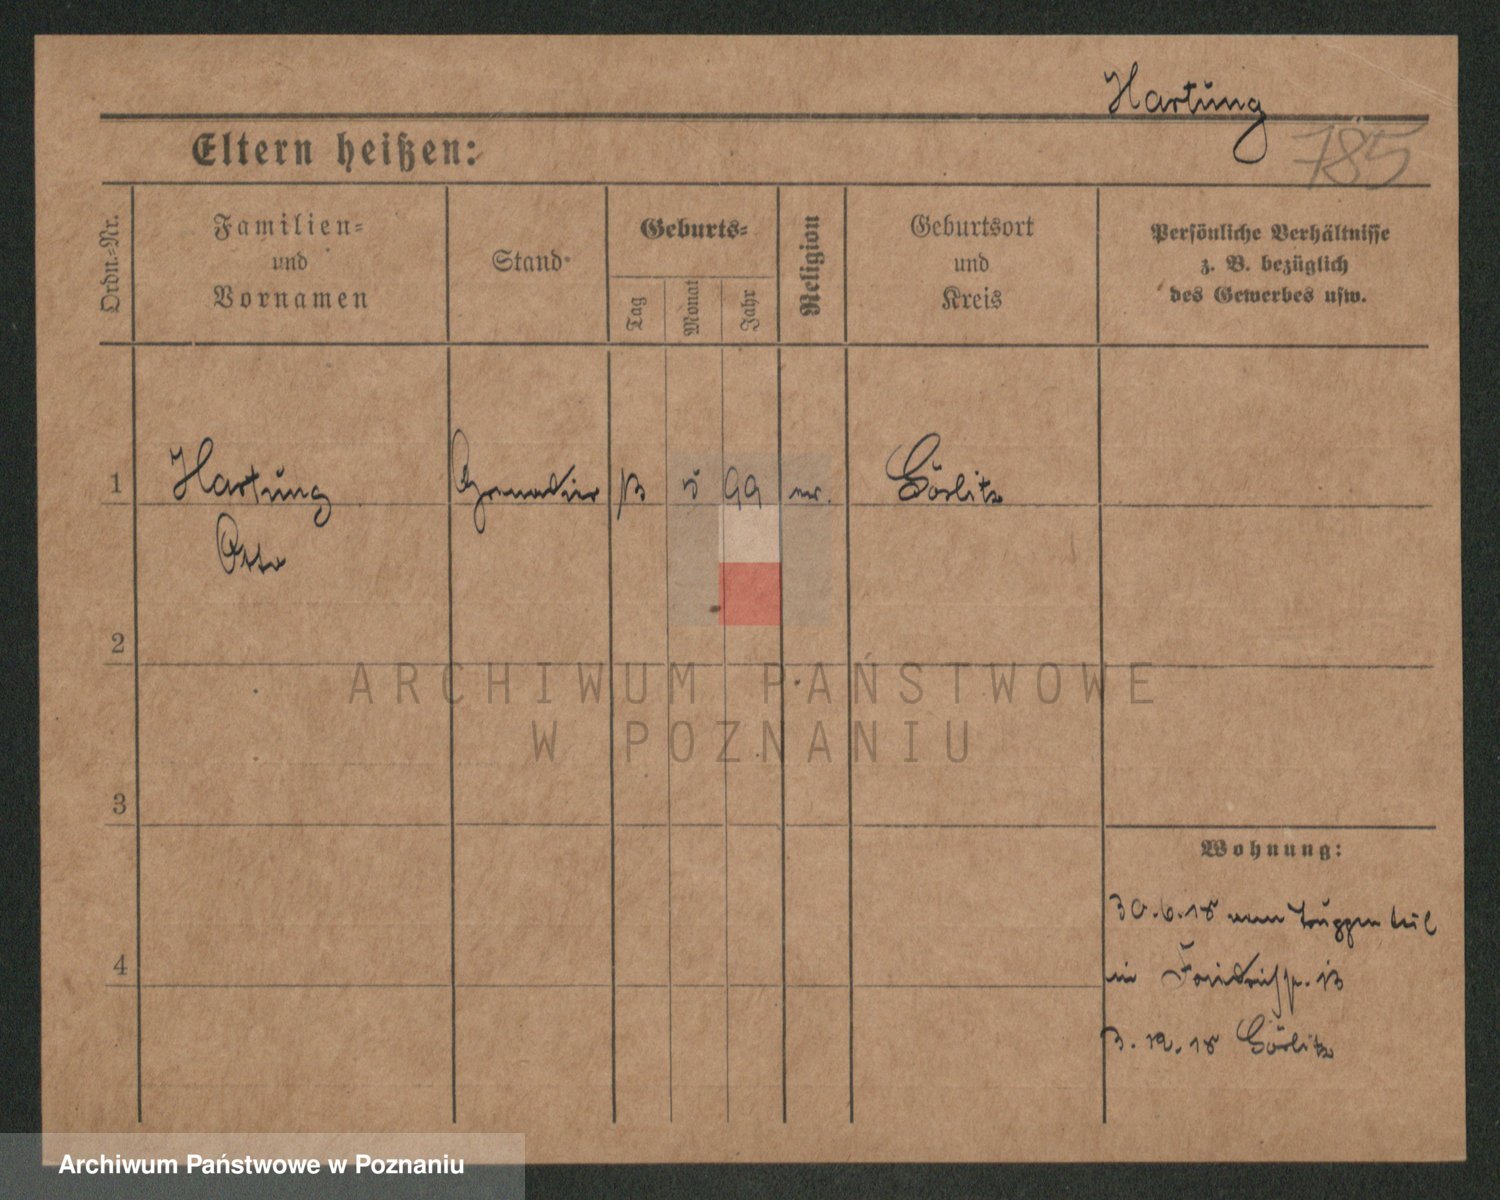 Hartung
785
Eltern heißen:
Ordn.-Nr.
Familien-
und
Vornamen
Stand
Geburts-
Tag
Monat
Jahr
Religion
Geburtsort
und
Kreis
Persönliche Verhältnisse
z. B. bezüglich
des Gewerbes usw.
1
Hartung
Grenadier
13
5
99
ev.
Görlitz
Otto
2
ARCHIWUM PAŃSTWOWE
W POZNANIU
3
Wohnung:
30.6.18 vom Truppenteil
in
4
12.18 Görlitz
Archiwum Państwowe w Poznaniu